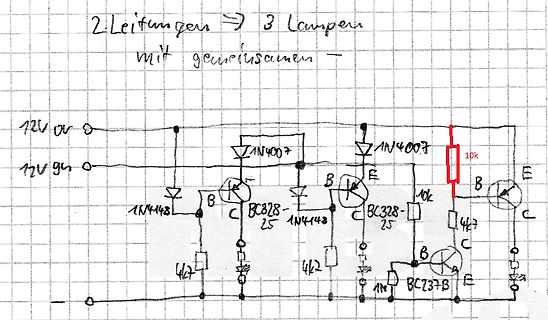 2 Leitungen => 3 Lampen
mit gemeinsamen -
12V or
12V gn
1N4007
1N4007
10k
E
E
B
B
B
10k
1N4148
C
BC328-
25
1N4148
C
BC328-
25
4k7
C
C
4k7
4k7
B
1M
BC237B
E
-